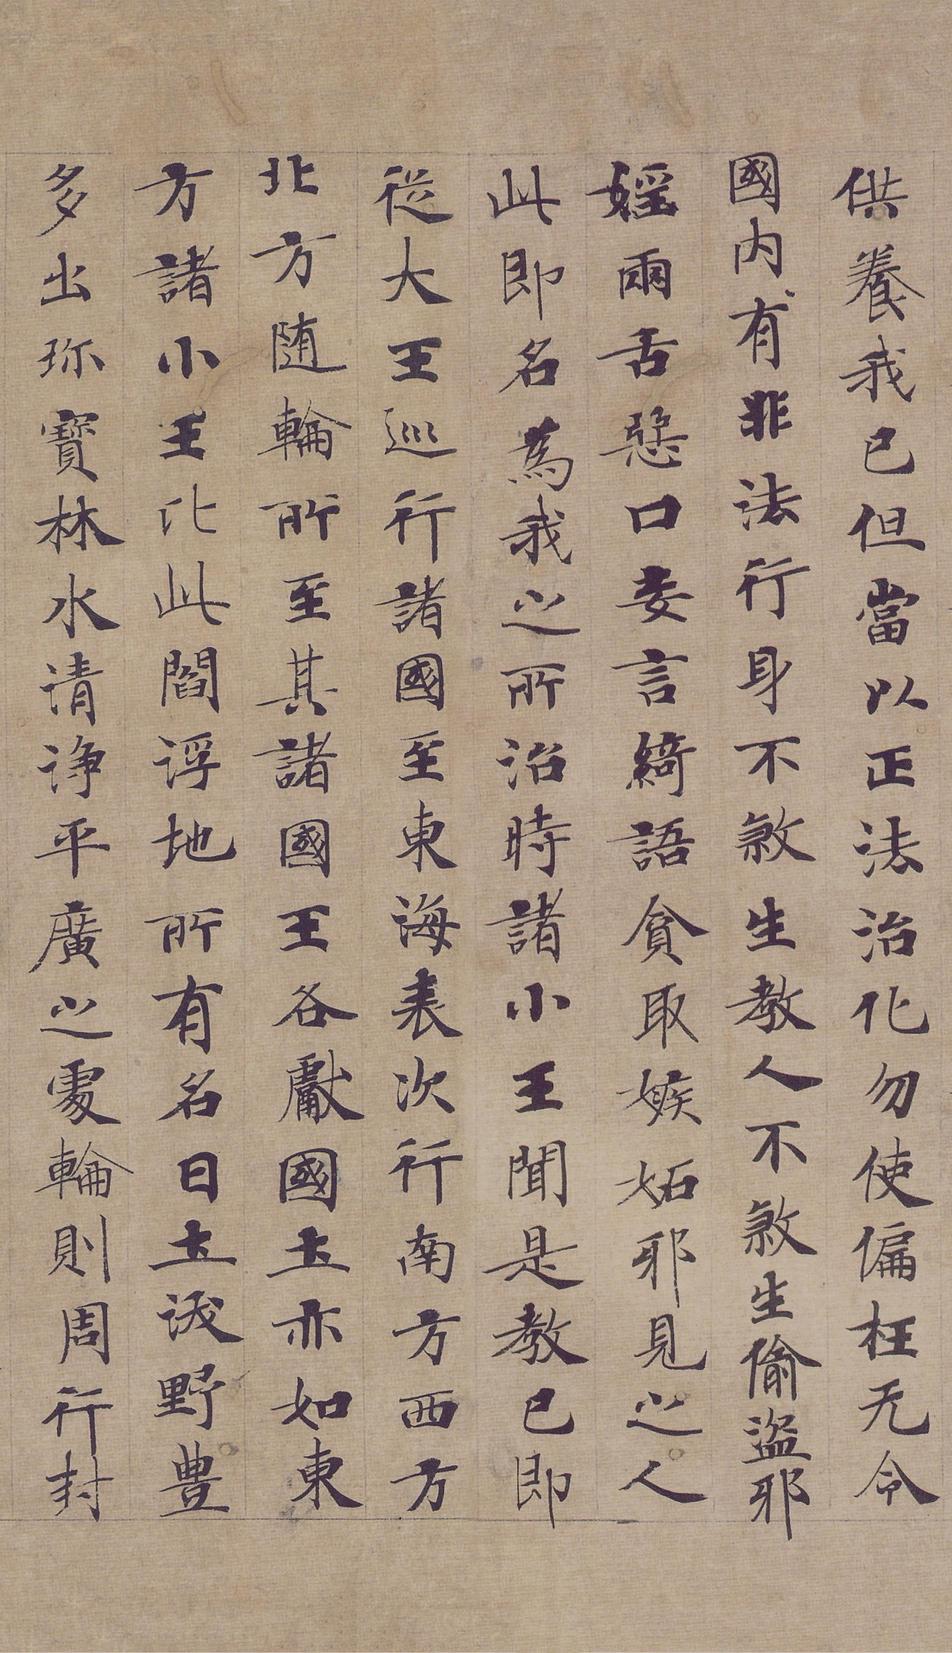 供養我已但當以正法治化勿使偏枉无令
國内有非法行身不煞生教人不煞生偷盜耶
婬兩舌惡口妄言綺語貪取嫉妬耶見之人
此即名為我之所治時諸小王聞是教已即
從大王巡行諸國至東海表次行南方西方
北方随輪所至其諸國王各獻國土亦如東
方諸小王比此閻浮地所有名曰土沃野豊
多出珎寶林水清淨平廣之處輪則周行封